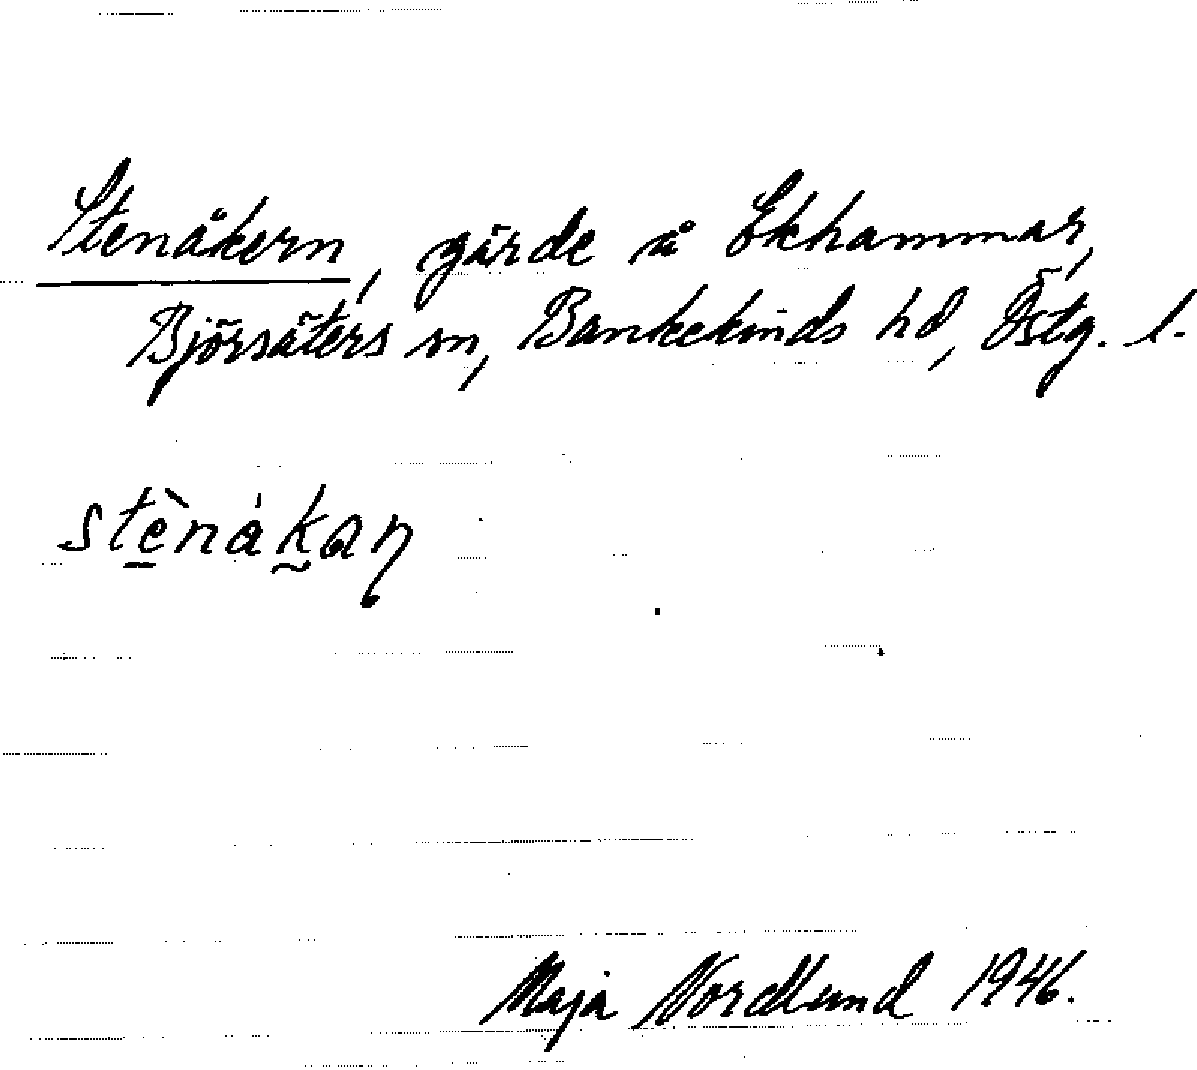 Stenåkern, gärde å Ekhammar,
Björsäters sn, Bankekinds hd, Östg. l.
stènåkaɳ
Maja Nordlund 1946.